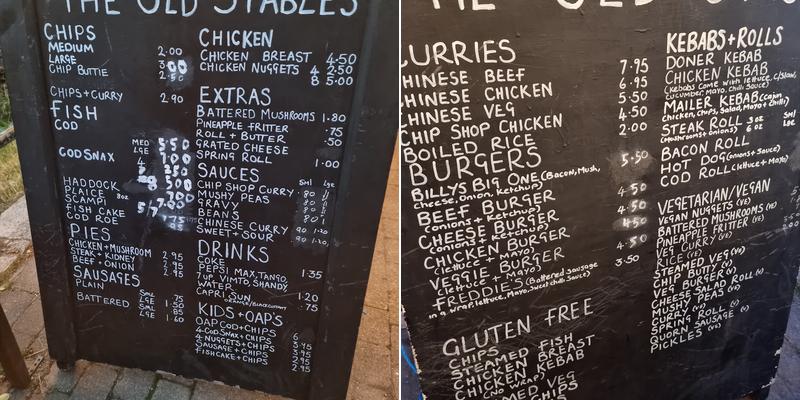 THE OLD STABLES
CHIPS
MEDIUM 2.00
LARGE 3.00
CHIP BUTTIE 2.50
CHIPS + CURRY 2.90
FISH
COD
MED 5.50
LGE 7.00
COD SNAX 4
8 5.00
HADDOCK
PLAICE 8oz
SCAMPI
FISH CAKE
COD ROE
PIES
CHICKEN + MUSHROOM 2.95
STEAK + KIDNEY 2.95
BEEF + ONION 2.95
SAUSAGES
PLAIN SML .75
LGE 1.50
BATTERED SML .85
LGE 1.60
CHICKEN
CHICKEN BREAST 4.50
CHICKEN NUGGETS 4 2.50
8 5.00
EXTRAS
BATTERED MUSHROOMS 1.80
PINEAPPLE FRITTER .75
ROLL + BUTTER .50
GRATED CHEESE
SPRING ROLL 1.00
SAUCES Sml Lge
CHIP SHOP CURRY .80
MUSHY PEAS
GRAVY
BEANS
CHINESE CURRY 90 1.20
SWEET + SOUR 90 1.20
DRINKS
COKE
PEPSI MAX, TANGO, 1.35
7UP, VIMTO, SHANDY
WATER 1.20
CAPRI SUN .75
ORANGE/BLACKCURRANT
KIDS + OAP'S
OAP COD + CHIPS 6
4 COD SNAX + CHIPS 3.45
4 NUGGETS + CHIPS 3.95
SAUSAGE + CHIPS 2.95
FISHCAKE + CHIPS 2.95
CURRIES
CHINESE BEEF 7.95
CHINESE CHICKEN 6.95
CHINESE VEG 5.50
CHIP SHOP CHICKEN 4.50
BOILED RICE 2.00
BURGERS
BILLYS BIG ONE (Bacon, Mush, 5.50
Cheese, Onion, ketchup)
BEEF BURGER 4.50
(onions + ketchup)
CHEESE BURGER 4.50
(onions + ketchup)
CHICKEN BURGER 4.50
(lettuce + Mayo)
VEGGIE BURGER 4.50
(lettuce + Mayo)
FREDDIE'S (Battered Sausage 3.50
in a wrap, lettuce, Mayo, Sweet chilli Sauce)
GLUTEN FREE
CHIPS
STEAMED FISH
CHICKEN BREAST
CHICKEN KEBAB
(NO WRAP)
STEAMED VEG
CHIPS
KEBABS + ROLLS
DONER KEBAB
CHICKEN KEBAB
(Kebabs come with lettuce, c/slaw,
cucumber, Mayo, chilli sauce)
MAILER KEBAB (cajun
chicken, chips, Salad, Mayo + Chilli)
STEAK ROLL 3oz Sml
(Mushrooms + onions) 6oz Lge
BACON ROLL
HOT DOG (onions + Sauce)
COD ROLL (lettuce + Mayo)
VEGETARIAN/VEGAN
VEGAN NUGGETS (VE)
BATTERED MUSHROOMS (VE)
PINEAPPLE FRITTER (VE)
VEG CURRY (VE)
RICE (VE)
STEAMED VEG (VE)
CHIP BUTTY (V)
VEG BURGER (V)
CHEESE SALAD ROLL (V)
MUSHY PEAS (V)
CURRY (V)
SPRING ROLL (V)
QUORN SAUSAGE (V)
PICKLES (VE)